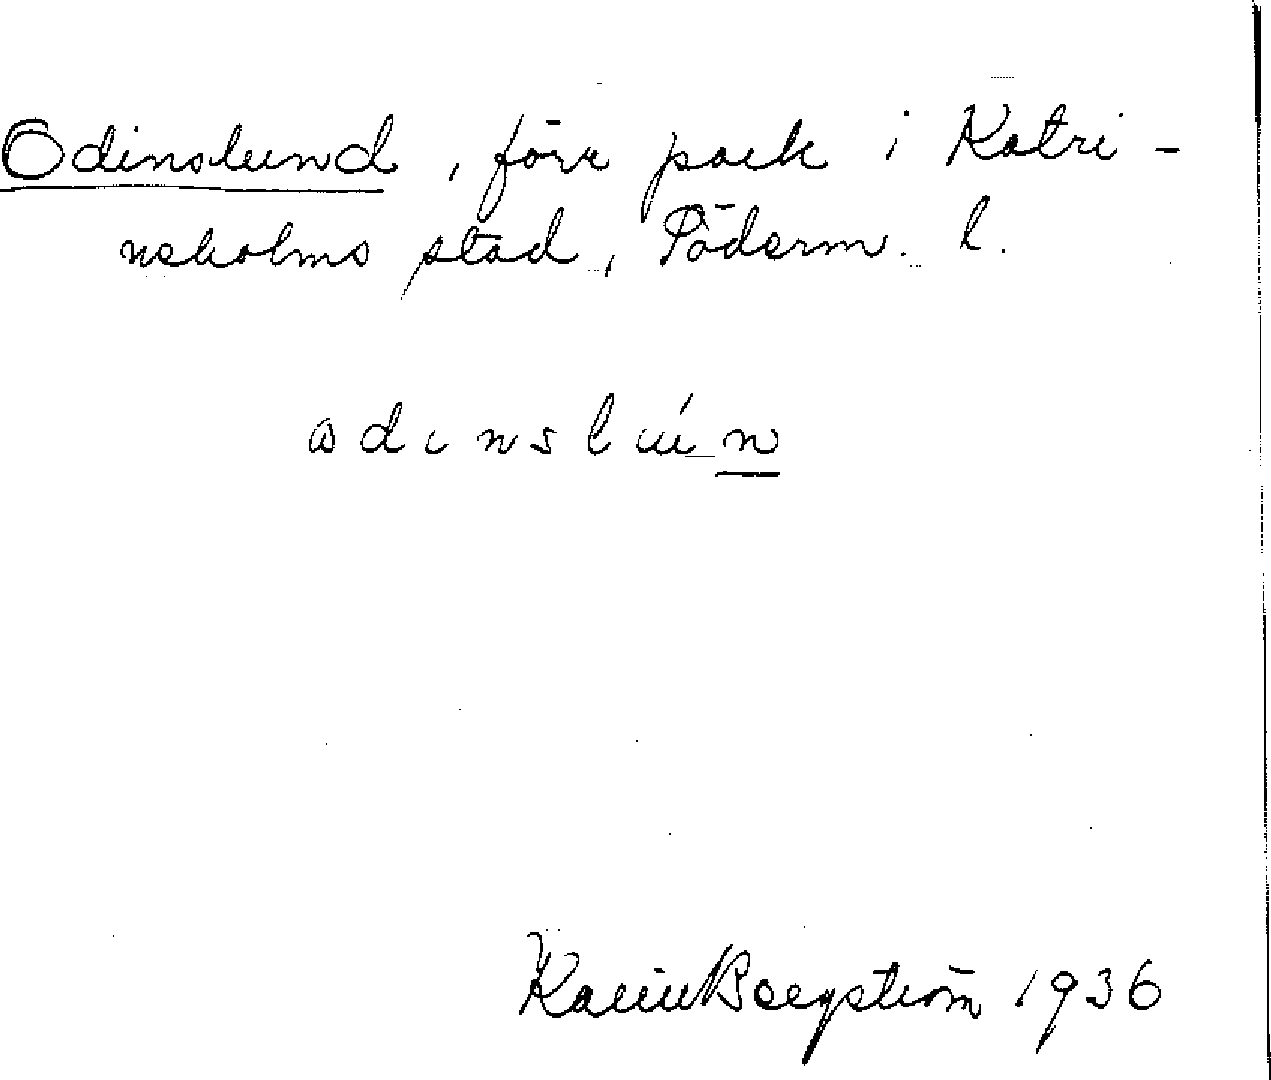 Odinslund, förr park i Katri-
neholms stad, Söderm. l.
Karin Bergström 1936